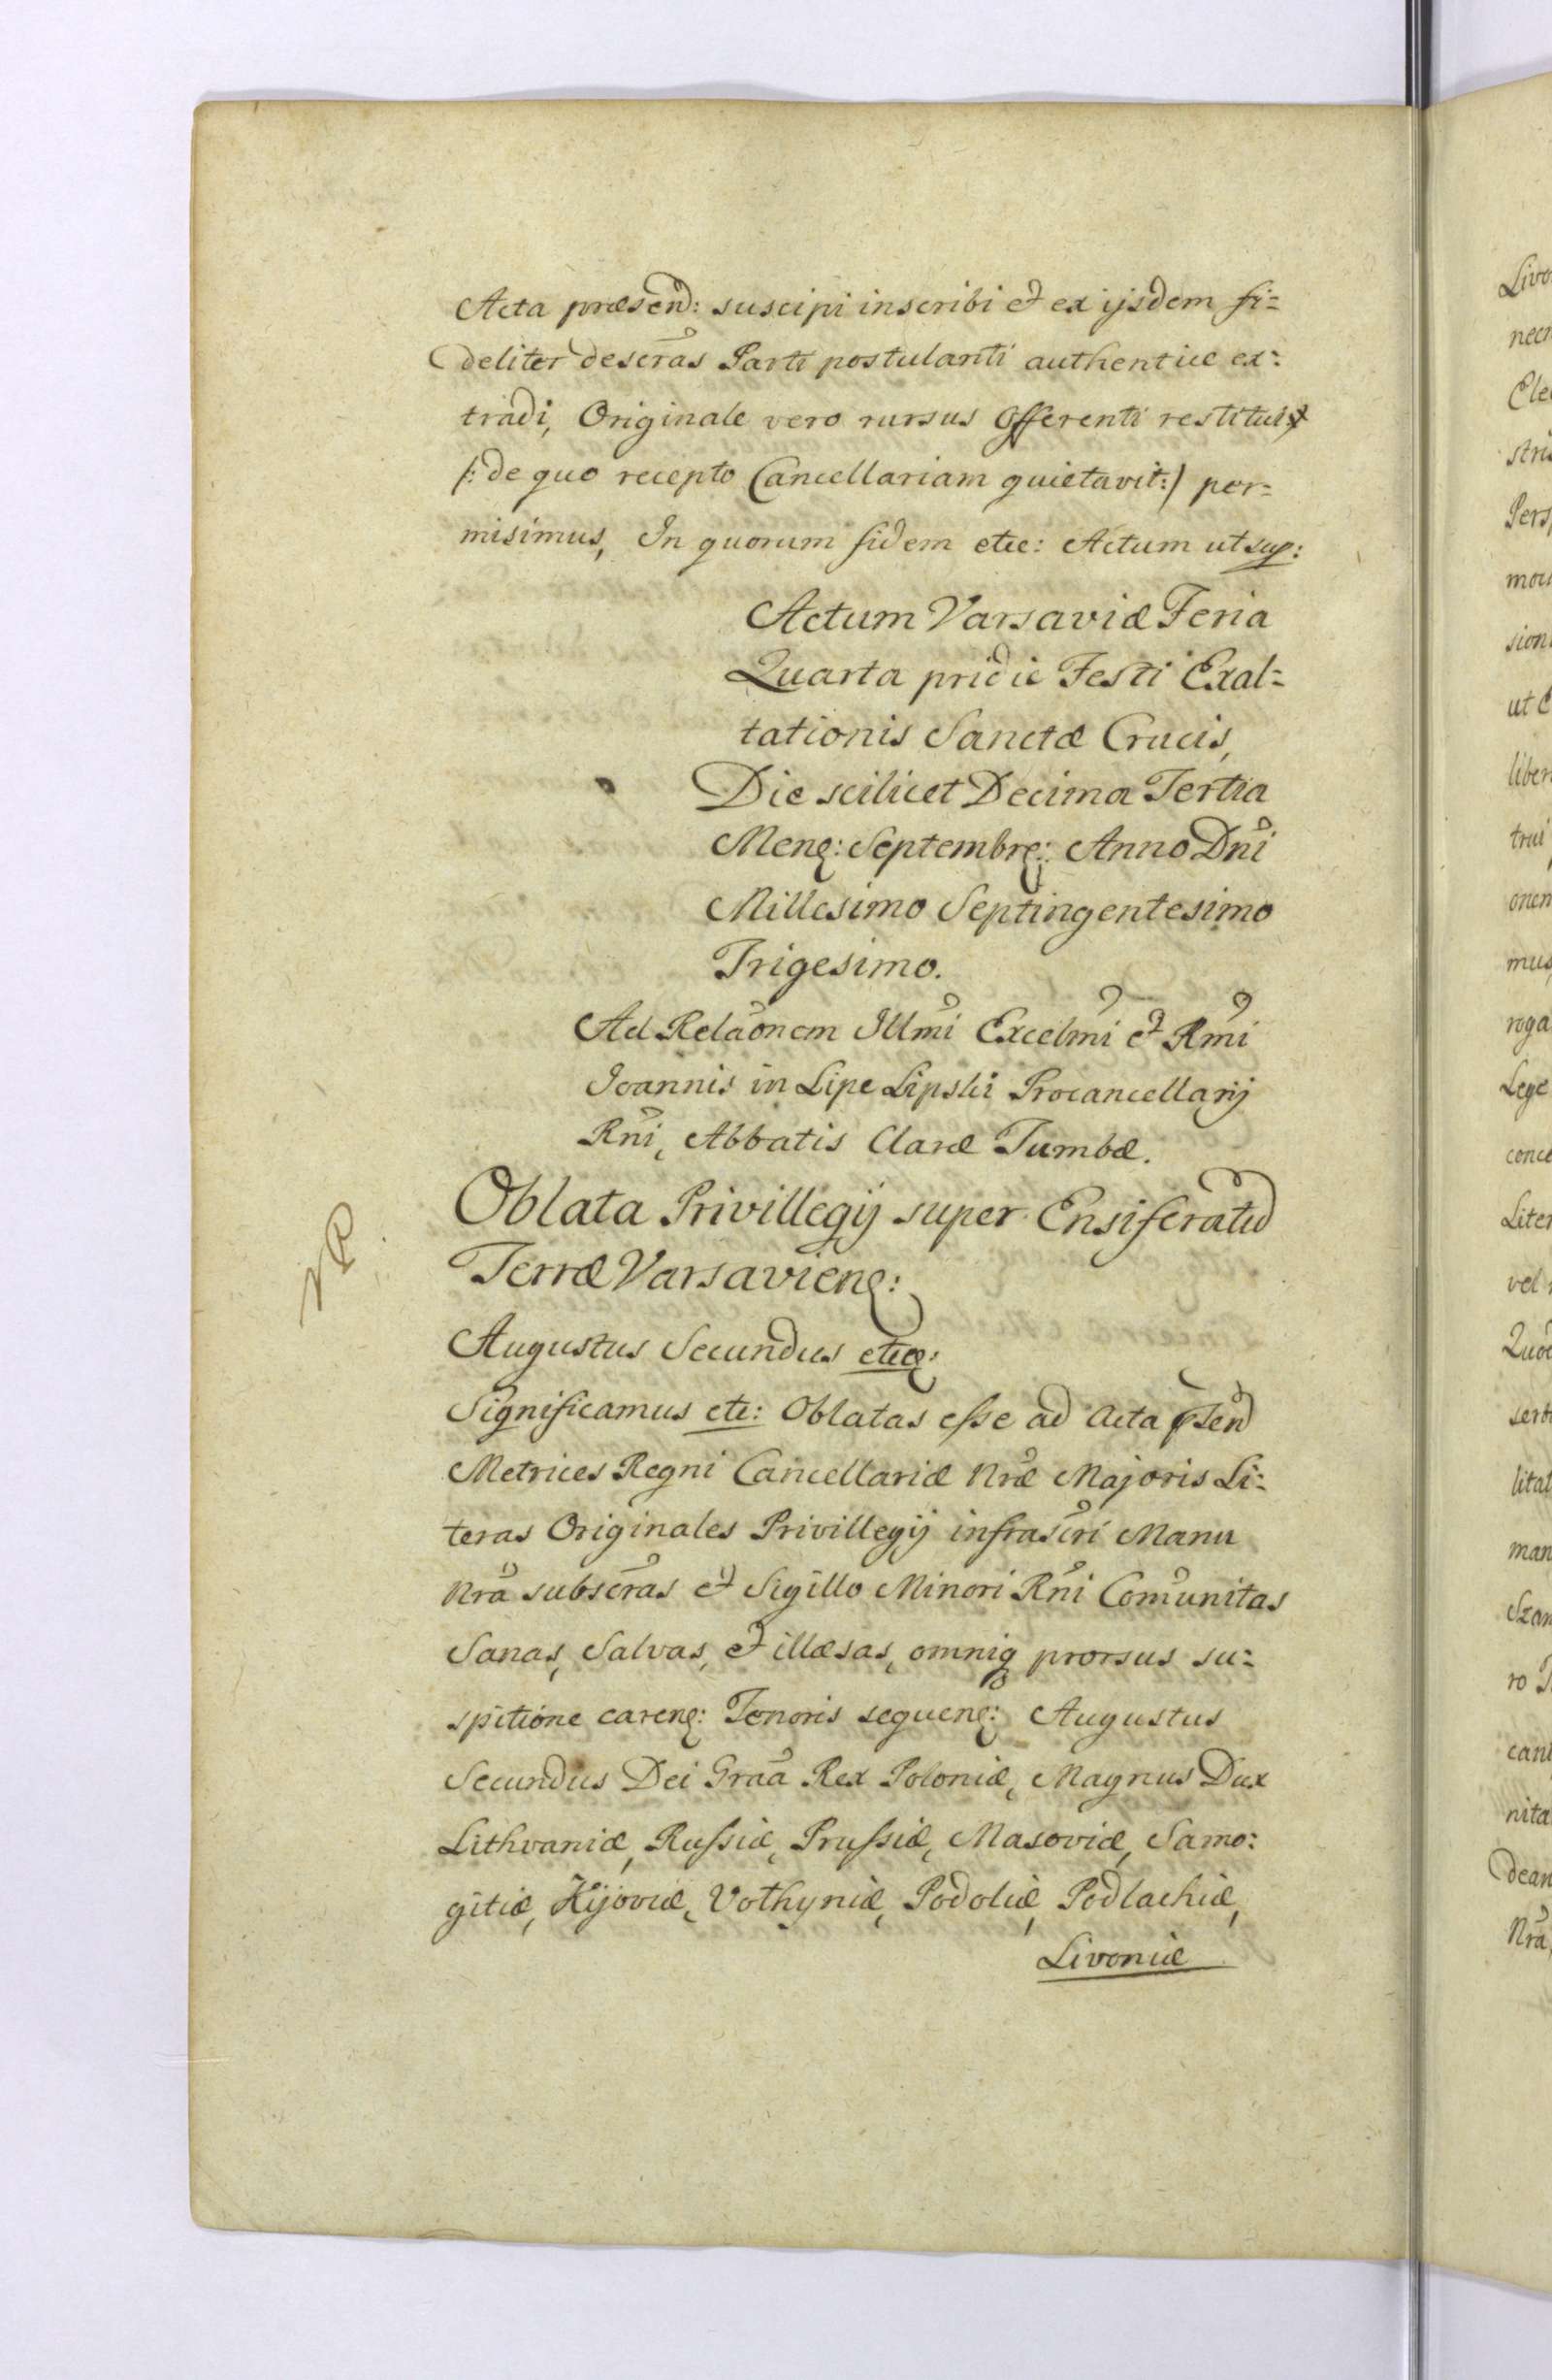 Acta præsend: suscipi inscribi et ex ijsdem fi=
deliter descras Parti postulanti authentice ex=
tradi, Originale vero rursus Offerenti restitui
/: de quo recepto Cancellariam quietavit :/ per=
misimus, In quorum fidem etcc: Actum ut sup:
Actum Varsaviæ Feria
Quarta pridie Festi Exal=
tationis Sanctæ Crucis,
Die scilicet Decima Tertia
Mens: Septembrs: Anno Dni
Millesimo Septingentesimo
Trigesimo.
Ad Relaonem Illmi Excelmi et Rmi
Joannis in Lipe Lipski Procancellarij
Rni, Abbatis Claræ Tumbæ.
Oblata Privillegij super Ensiferatu
Terræ Varsaviens:
Augustus Secundus etcc:
Significamus etc: Oblatas esse ad Acta pŝend
Metrices Regni Cancellariæ Nræ Majoris Li=
teras Originales Privillegij infrascri Manu
Nra subscras et Sigillo Minori Rni Comunitas
Sanas, Salvas, et illæsas, omniq prorsus su=
spitione carens: Tenoris sequens: Augustus
Secundus Dei Graa Rex Poloniæ, Magnus Dux
Lithvaniæ, Russiæ, Prussiæ, Masoviæ, Samo=
gitiæ, Kijoviæ, Volhyniæ, Podoliæ, Podlachiæ,
Livoniæ